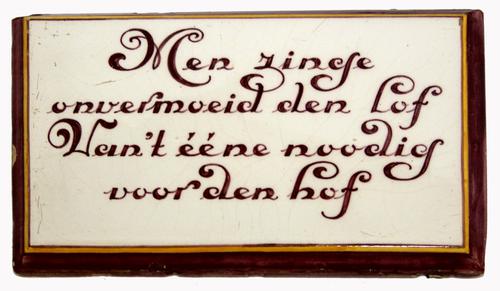 Men zinge
onvermoeid den lof
Van't ééne noodig
voor den hof